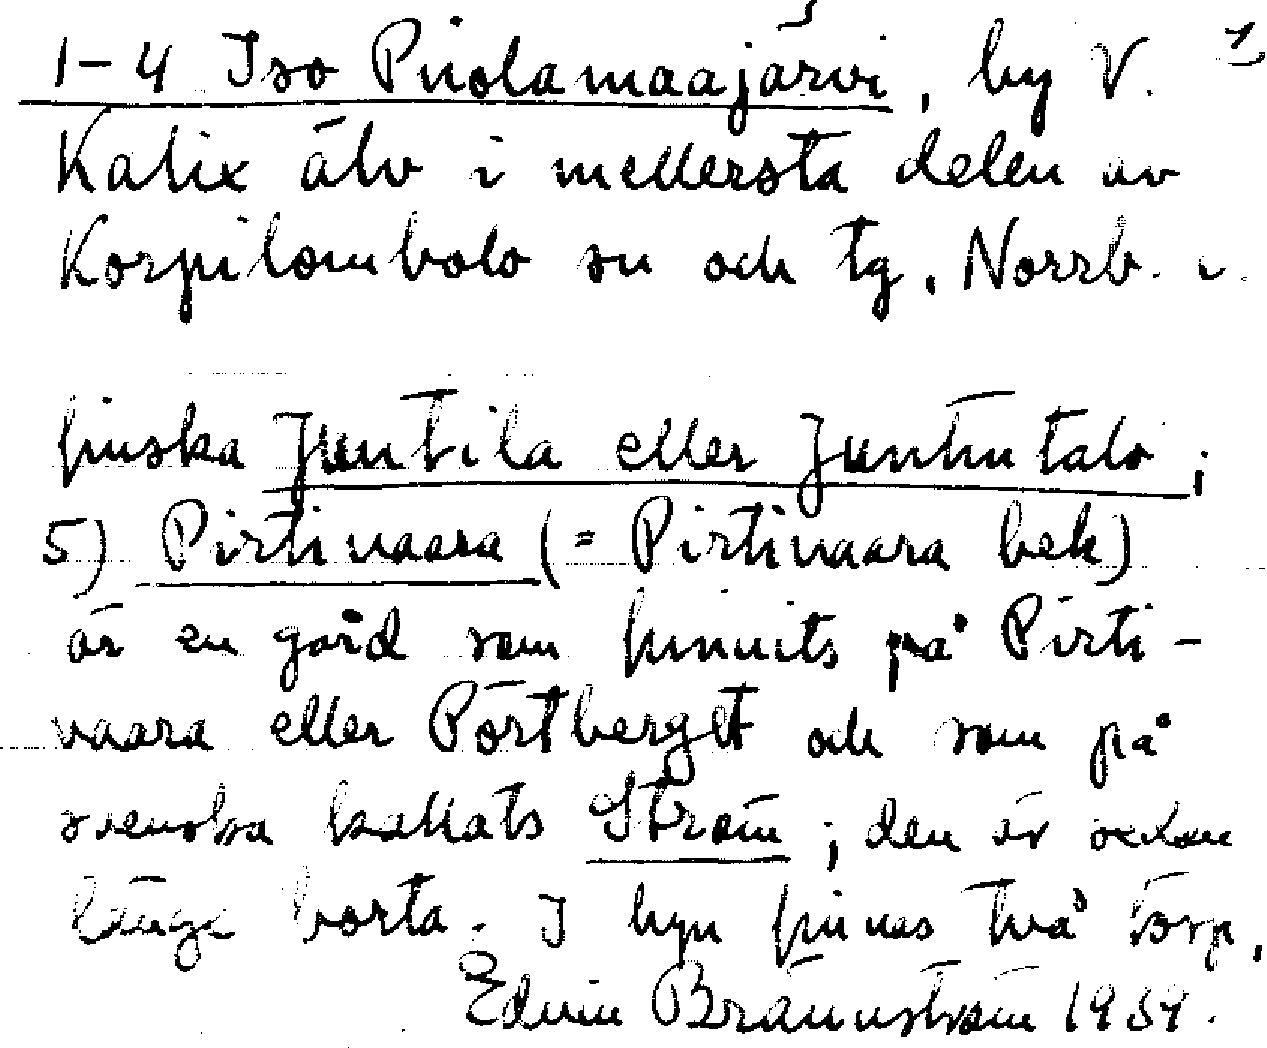 1-4 Iso Puolamaajärvi, by V. 1
Kalix älv i mellersta delen av
Korpilombolo sn och tg, Norrb. l.
finska Juntila eller Juntintalo;
5) Pirtivaara (= Pirtivaara bek)
är en gård som funnits på Pirti-
vaara eller Pörtberget och som på
svenska kallats Ström; den är också
länge borta. I byn finnas två torp.
Edvin Brännström 1959.